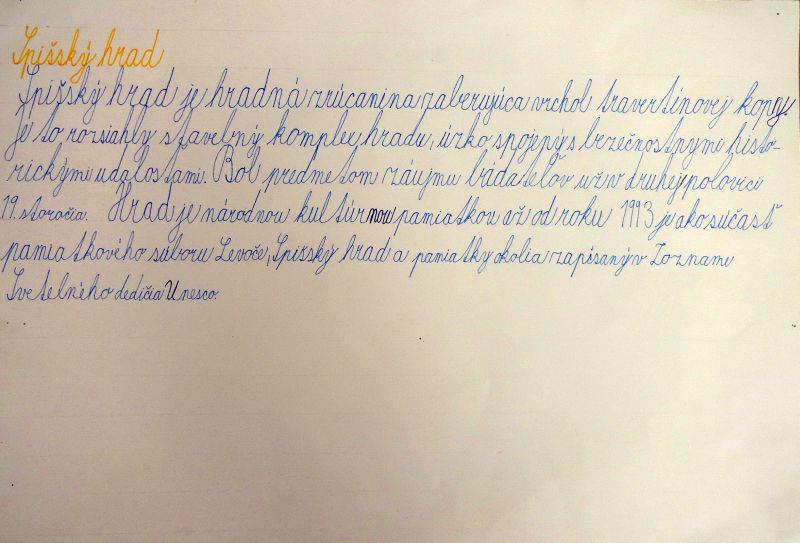 Spišský hrad
Spišský hrad je hradná zrúcanina zaberujúca vrchol travertínovej kopy.
Je to rozsiahly stavebný komplex hradu, úzko spojený s bezečnostnymi histo-
rickými udalosťami. Bol predmetom záujmu bádateľov už v druhej polovici
19. storočia. Hrad je národnou kultúrnou pamiatkou až od roku 1993 je ako súčasť
pamiatkového súboru Levoče, Spišský hrad a pamiatky okolia zapísaný v Zozname
Svetelného dedičia Unesco.